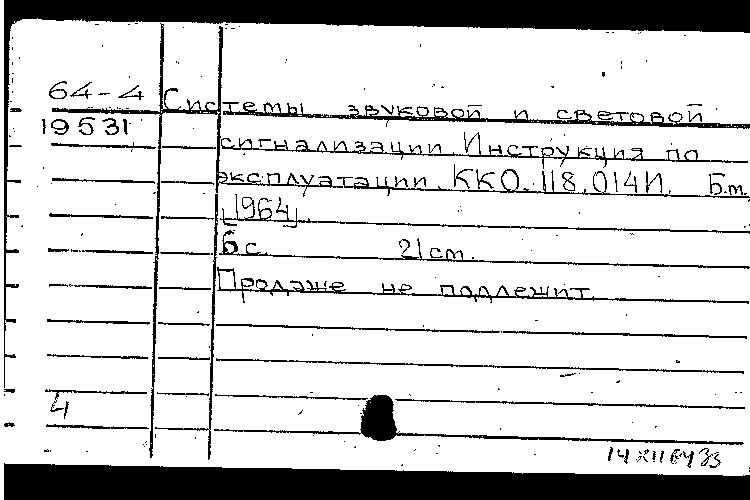 64-4 Системы звуковой и световой
19531 сигнализации. Инструкция по
эксплуатации. ККО. 118. 014И. Б.м.,
[1964].
6 с. 21 см.
Продаже не подлежит.
4